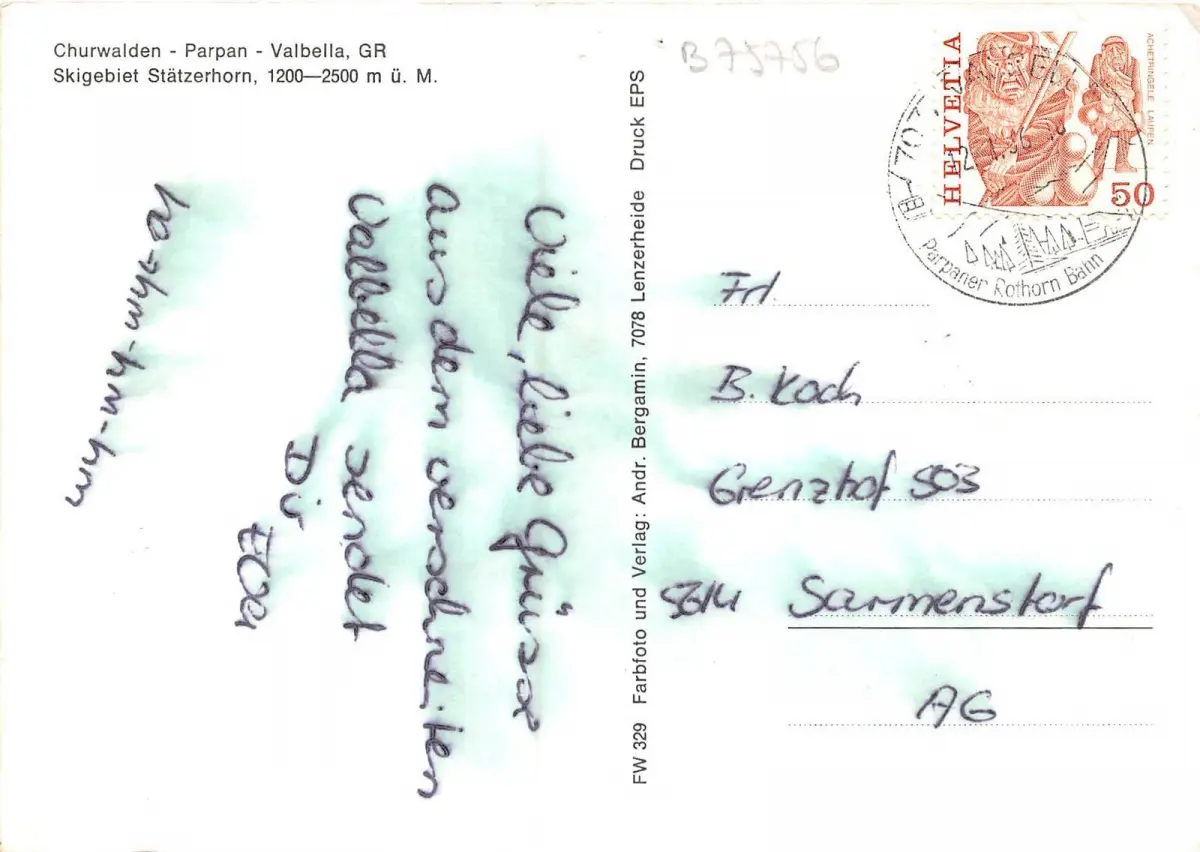 Churwalden - Parpan - Valbella, GR
Skigebiet Stätzerhorn, 1200—2500 m ü. M.
Viele, liebe Grüsse
aus dem verschneiten
Valbella sendet
Dir
FW 329 Farbfoto und Verlag: Andr. Bergamin, 7078 Lenzerheide Druck EPS
B 75756
HELVETIA
ACHETRINGELE LAUPEN
50
Parpaner Rothorn Bahn
Frl.
B. Koch
Grenzhof 503
5614 Sarmenstorf
AG